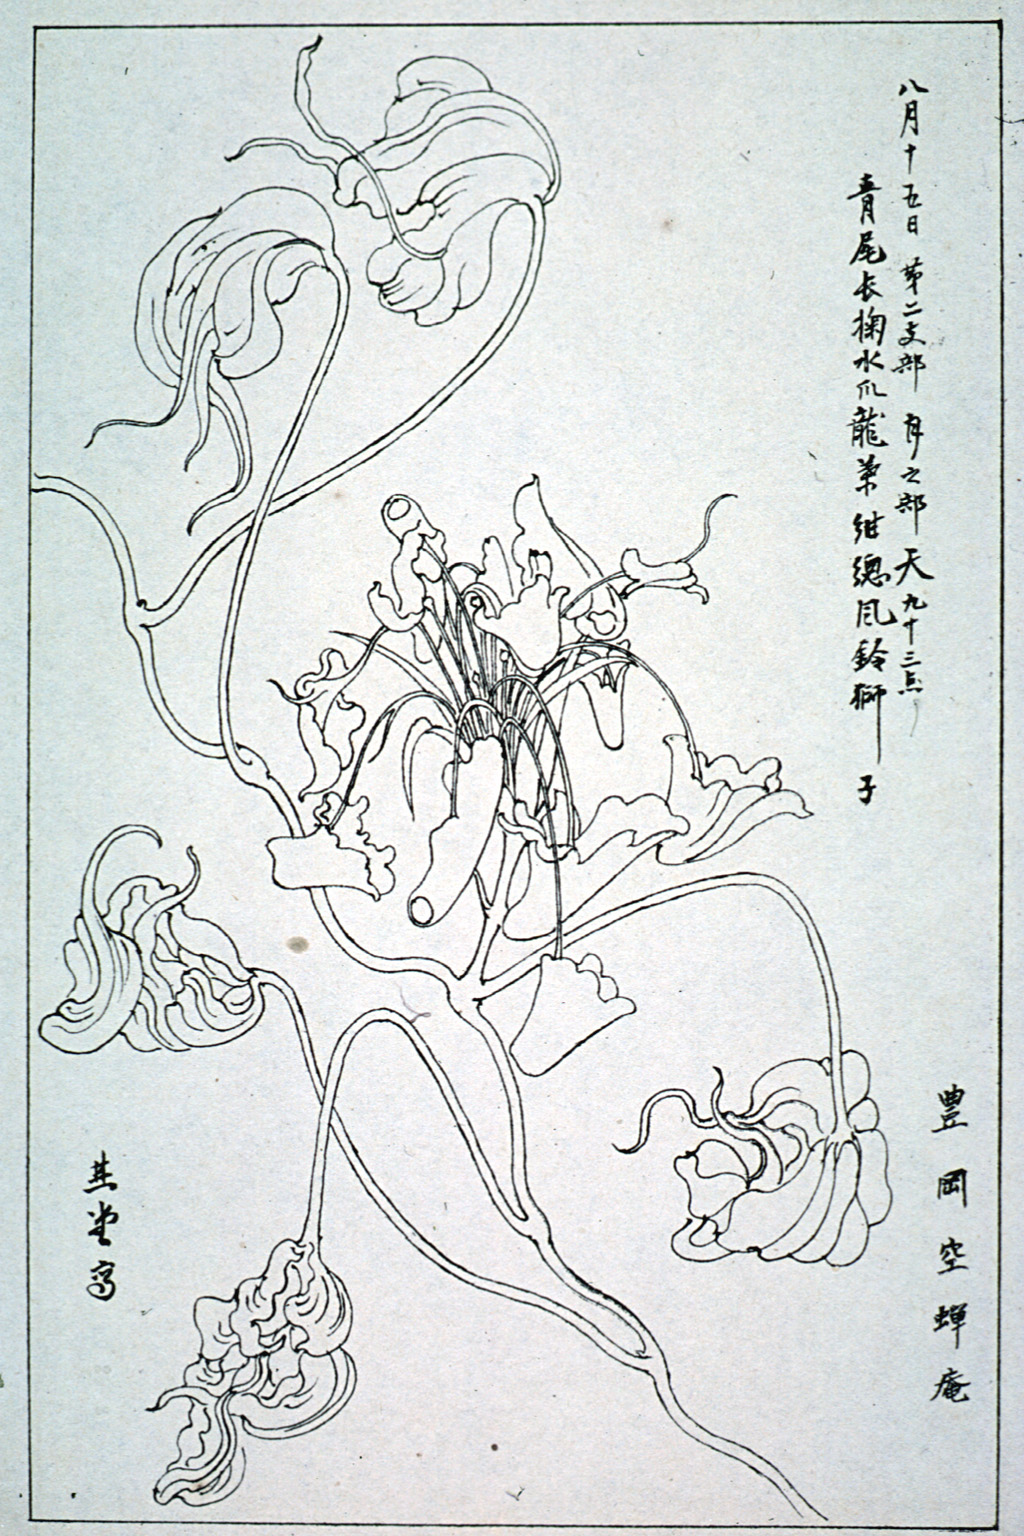 八月十五日 第二支部 月之部 天 九十三点
青尾長掬水爪龍葉紺總風鈴獅子
豊岡空蝉庵
燕堂寫